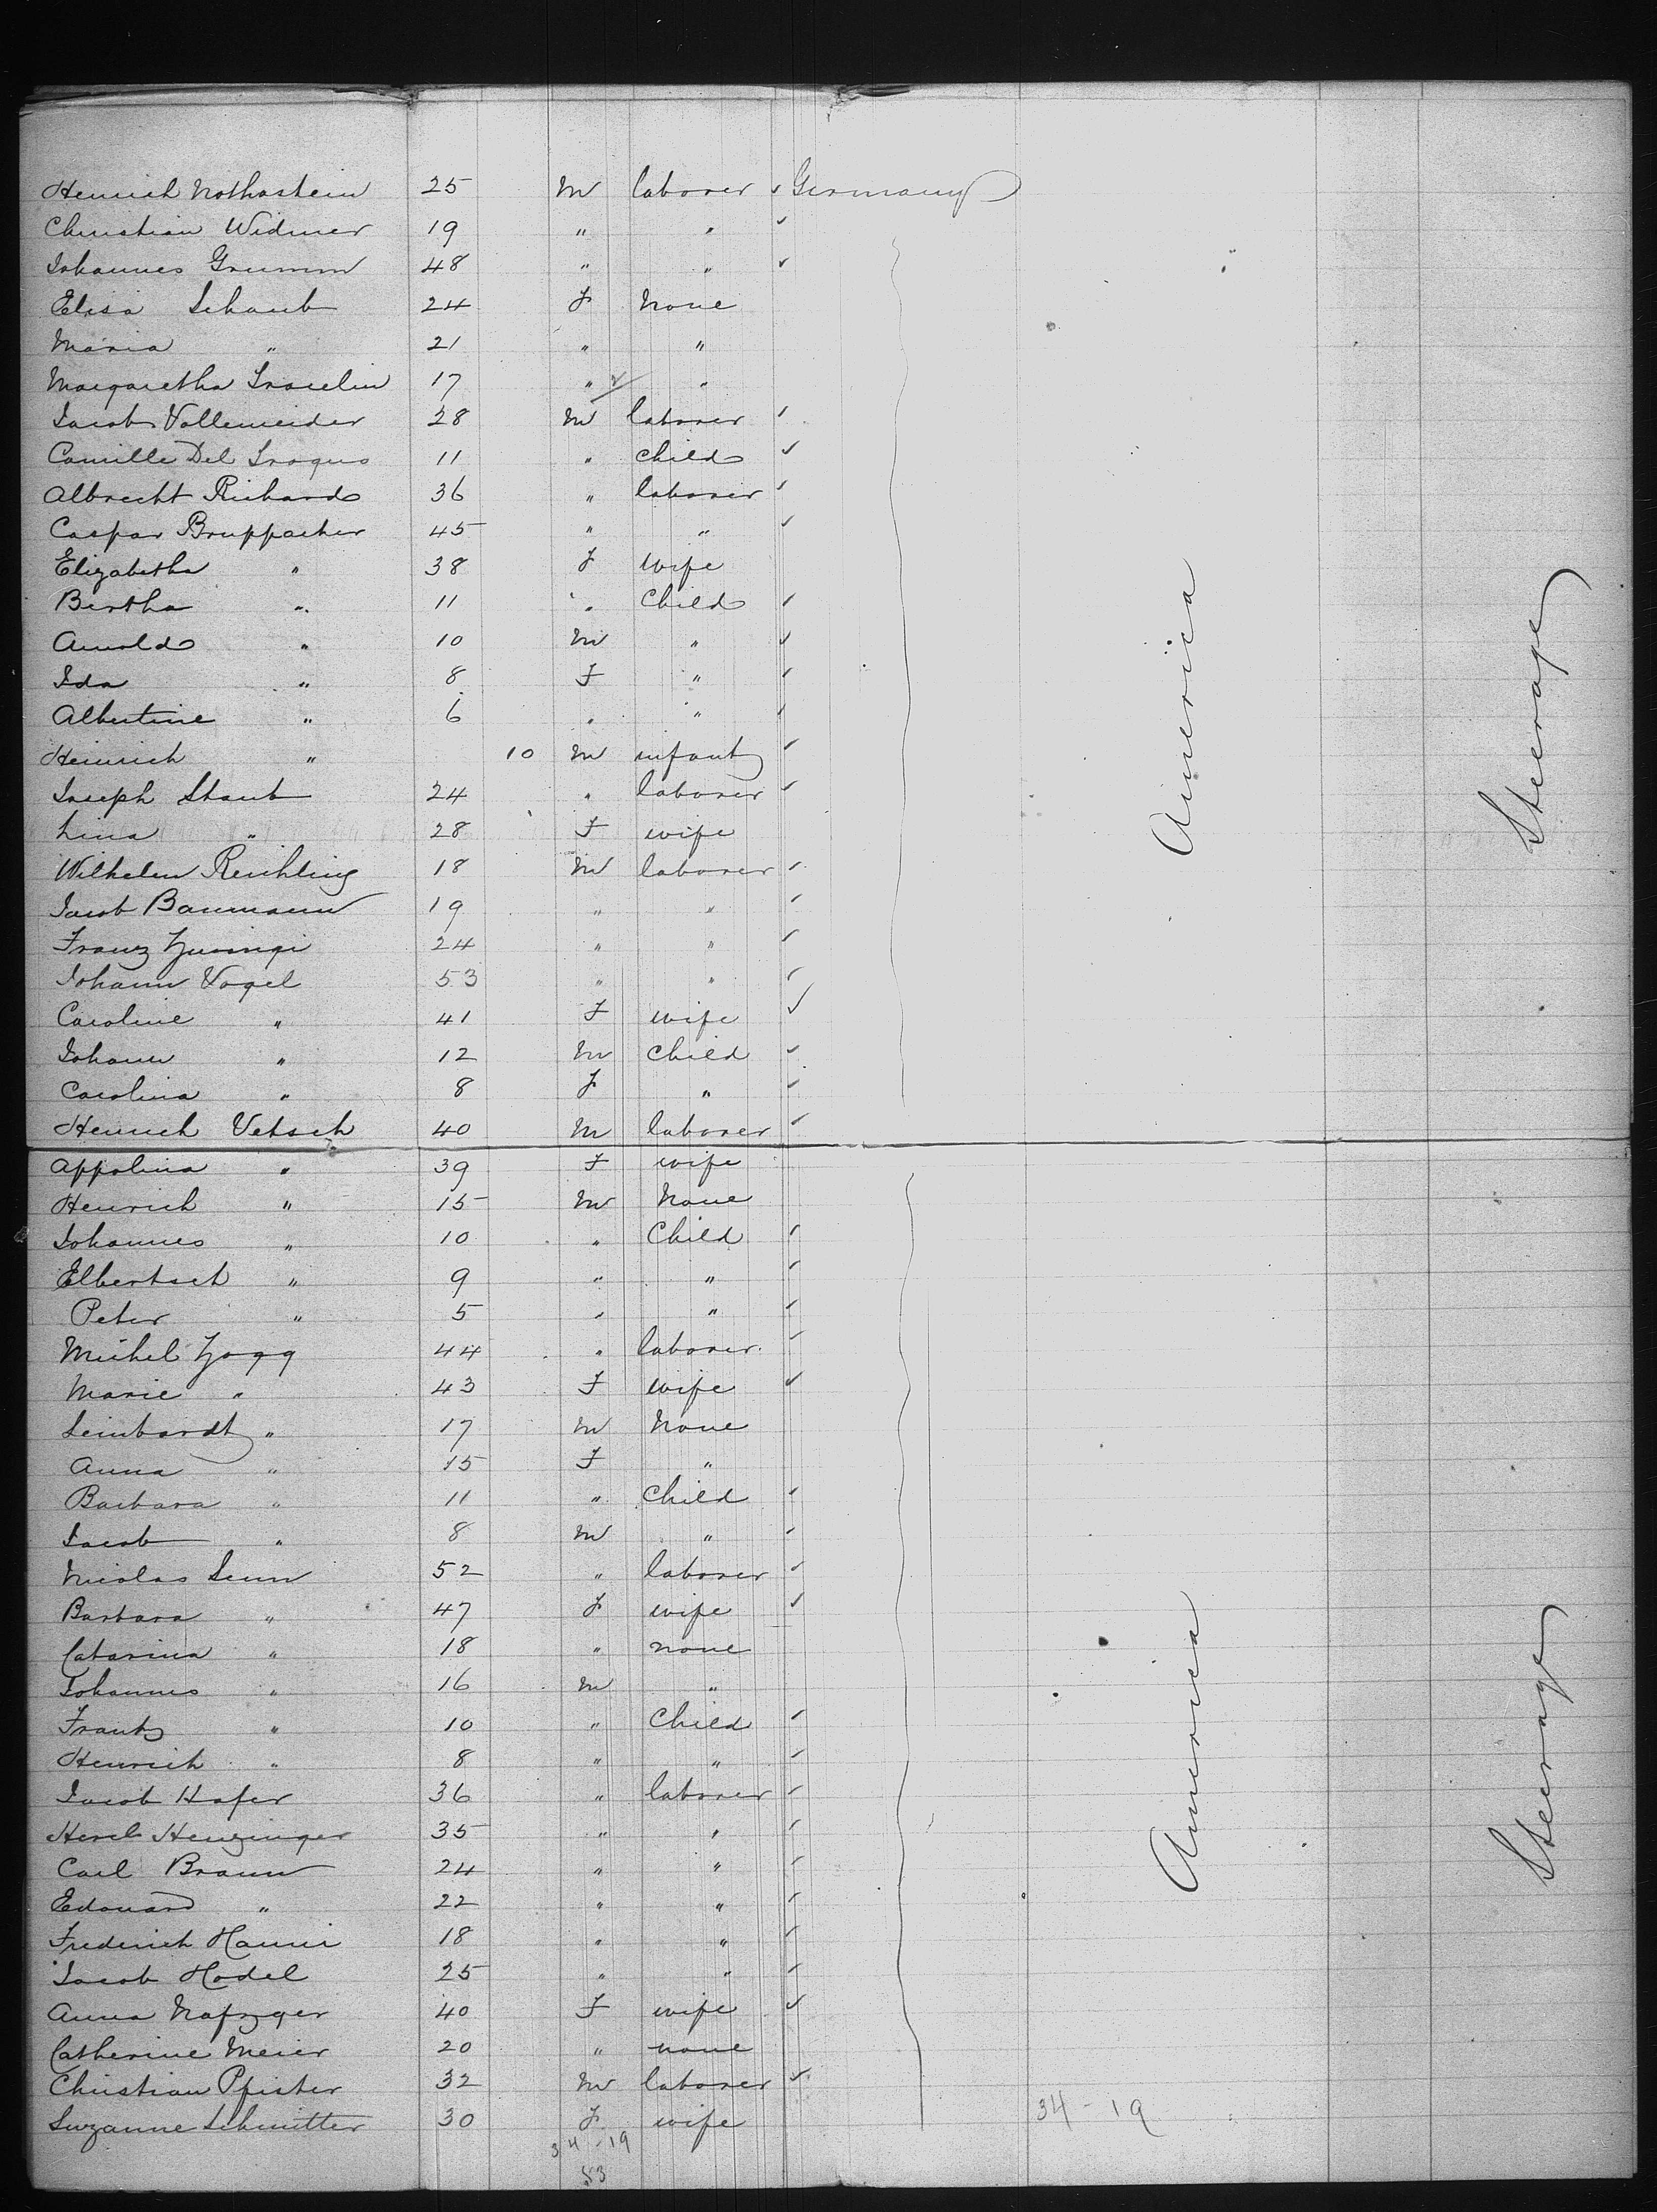 Henrich Nothastein 25 M laborer ✓ Germany
Christian Widmer 19 " " ✓
Johannes Grumm 48 " " ✓
Elisa Schaub 24 F None
Maria " 21 " "
Margaretha 17 " ✓ "
Jacob Vollemeider 28 M laborer ✓
Camille Del 11 " Child ✓
Albrecht Richard 36 " laborer ✓
Caspar Bruppacher 45 " " ✓
Elizabetha " 38 F wife
Bertha " 11 " Child ✓
Arnold " 10 M " ✓
Ida " 8 F " ✓
Albertine " 6 " " ✓
Heinrich " 10 M infant ✓
Joseph Staub 24 " laborer ✓
Lina " 28 F wife
Wilhelm Reichling 18 M laborer ✓
Jacob Baumann 19 " " ✓
Franz 24 " " ✓
Johann Vogel 53 " " ✓
Caroline " 41 F wife ✓
Johann " 12 M Child ✓
Carolina " 8 F " ✓
Henrich Vetsch 40 M laborer ✓
Appolina " 39 F wife
Henrich " 15 M None
Johannes " 10 " Child ✓
Elbertsch " 9 " " ✓
Peter " 5 " " ✓
Michel Zogg 44 " laborer ✓
Marie " 43 F wife ✓
Leinhardt " 17 M None
Anna " 15 F "
Barbara " 11 " Child ✓
Jacob " 8 M " ✓
Nicolas Senn 52 " laborer ✓
Barbara " 47 F wife ✓
Catarina " 18 " none
Johannes " 16 M "
Frantz " 10 " Child ✓
Henrich " 8 " " ✓
Jacob Hofer 36 " laborer ✓
Henzinger 35 " " ✓
Carl Braun 24 " " ✓
Edouard " 22 " " ✓
Frederich 18 " " ✓
Jacob Hodel 25 " " ✓
Anna Nafzger 40 F wife ✓
Catherine Meier 20 " none
Christian Pfister 32 M laborer ✓
Suzanne Schmitter 30 F wife
34 - 19
34 - 19
53
America
Steerage
America
Steerage